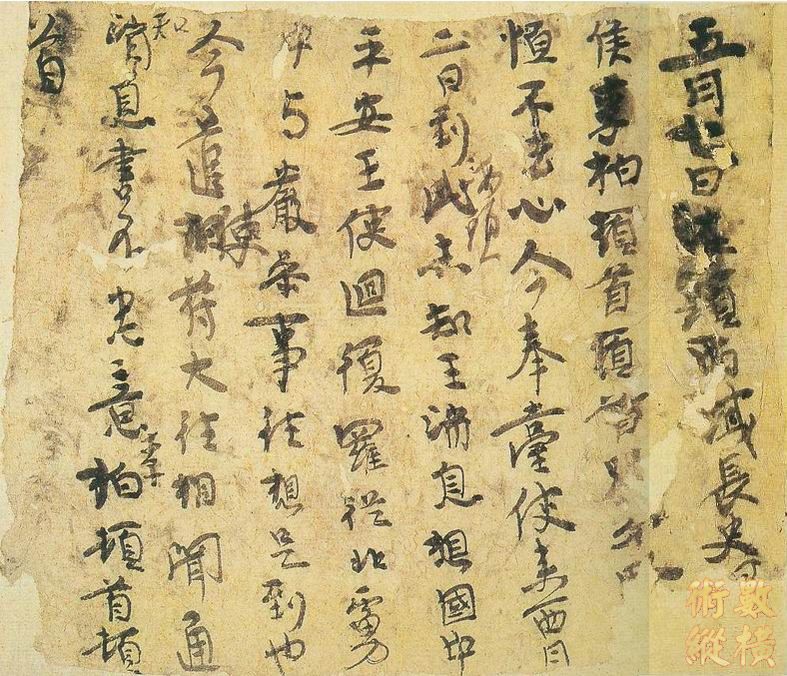 五月七日海頭西域長史
侯李柏頓首頓首
恒不去心今奉臺使来西月
二日到此海頭未知王消息想國中
平安王使迴復羅從北虜
中与嚴參事往想是到也
今遣使符大往相聞通
知消息書不悉意李柏頓首頓
首
數橫
術縱